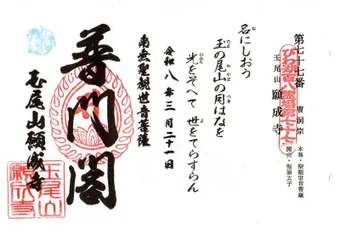 第七十七番
曹洞宗
びわ湖百八霊場第七十七
玉尾山 願成寺
本尊・聖観世音菩薩
開基・聖徳太子
名にしおう
玉の尾山の月はなを
光をそへて 世をてらすらん
令和八年三月二十一日
南無聖観世音菩薩
普門閣
玉尾山願成寺